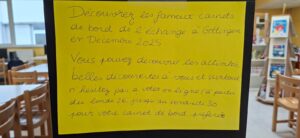 Découvrez les fameux carnets
de bord de l'échange à Göttingen
en Décembre 2025
Vous pouvez découvrir les activités
belles découvertes à vous et surtout
n'hésitez pas à voter en ligne à partir
du lundi 26 jusqu'au vendredi 30
pour votre carnet de bord préféré